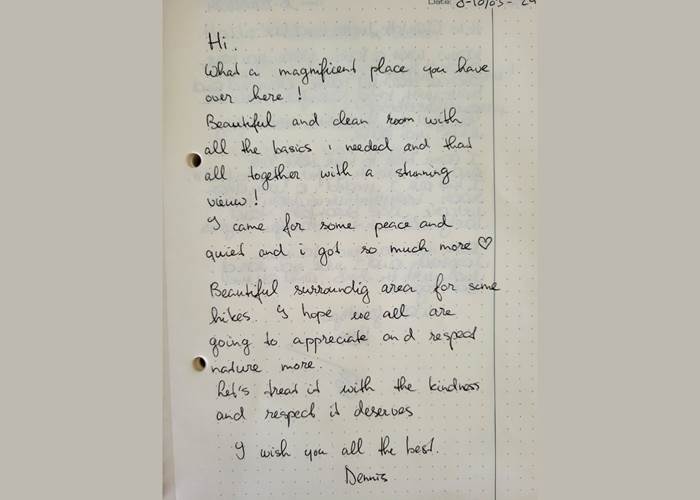 Date: 8-10/03-24
Hi.
What a magnificent place you have
over here !
Beautiful and clean room with
all the basics i needed and that
all together with a stunning
view !
I came for some peace and
quiet and i got so much more ♡
Beautiful surroundig area for some
hikes. I hope we all are
going to appreciate and respect
nature more.
Let's treat it with the kindness
and respect it deserves
I wish you all the best.
Dennis